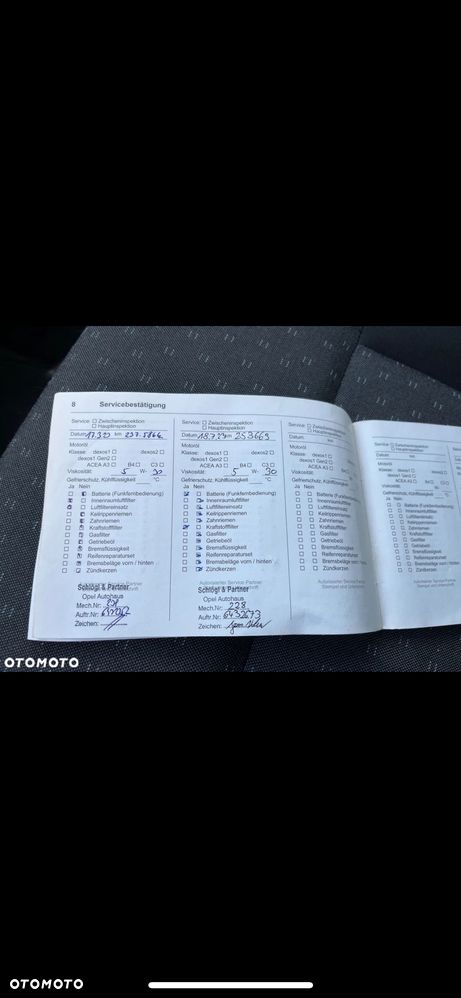 8 Servicebestätigung
Service: Zwischeninspektion
Hauptinspektion
Datum 17.3.23 km
Motoröl
Klasse: dexos1 dexos2
dexos1 Gen2
ACEA A3 B4 C3
Viskosität: 5 W- 30
Gefrierschutz, Kühlflüssigkeit °C
Ja Nein
Batterie (Funkfernbedienung)
Innenraumluftfilter
Luftfiltereinsatz
Keilrippenriemen
Zahnriemen
Kraftstofffilter
Gasfilter
Getriebeöl
Bremsflüssigkeit
Bremsbeläge vorn / hinten
Reifenreparaturset
Zündkerzen
Schlögl & Partner
Opel Autohaus
Mech.Nr:
Auftr.Nr:
Zeichen:
Service: Zwischeninspektion
Hauptinspektion
Datum km 253663
Motoröl
Klasse: dexos1 dexos2
dexos1 Gen2
ACEA A3 B4 C3
Viskosität: 5 W- 30
Gefrierschutz, Kühlflüssigkeit °C
Ja Nein
Batterie (Funkfernbedienung)
Innenraumluftfilter
Luftfiltereinsatz
Keilrippenriemen
Zahnriemen
Kraftstofffilter
Gasfilter
Getriebeöl
Bremsflüssigkeit
Bremsbeläge vorn / hinten
Reifenreparaturset
Zündkerzen
Autorisierter Service Partner
Schlögl & Partner
Opel Autohaus
Mech.Nr: 228
Auftr.Nr: 6432673
Zeichen:
Service: Zwischeninspektion
Hauptinspektion
Datum: km
Motoröl
Klasse: dexos1 dexos2
dexos1 Gen2
ACEA A3 B4 C3
Viskosität: W-
Gefrierschutz, Kühlflüssigkeit °C
Ja Nein
Batterie (Funkfernbedienung)
Innenraumluftfilter
Luftfiltereinsatz
Keilrippenriemen
Zahnriemen
Kraftstofffilter
Gasfilter
Getriebeöl
Bremsflüssigkeit
Bremsbeläge vorn / hinten
Reifenreparaturset
Zündkerzen
Autorisierter Service Partner
Stempel und Unterschrift
Service: Zwischeninspektion
Hauptinspektion
Datum: km
Motoröl
Klasse: dexos1 dexos2
dexos1 Gen2
ACEA A3 B4 C3
Viskosität: W-
Gefrierschutz, Kühlflüssigkeit
Ja Nein
Batterie (Funkfernbedienung)
Innenraumluftfilter
Luftfiltereinsatz
Keilrippenriemen
Zahnriemen
Kraftstofffilter
Gasfilter
Getriebeöl
Bremsflüssigkeit
Bremsbeläge vorn / hinten
Reifenreparaturset
Zündkerzen
Autorisierter Service Partner
Stempel und Unterschrift
OTOMOTO
OTOMOTO